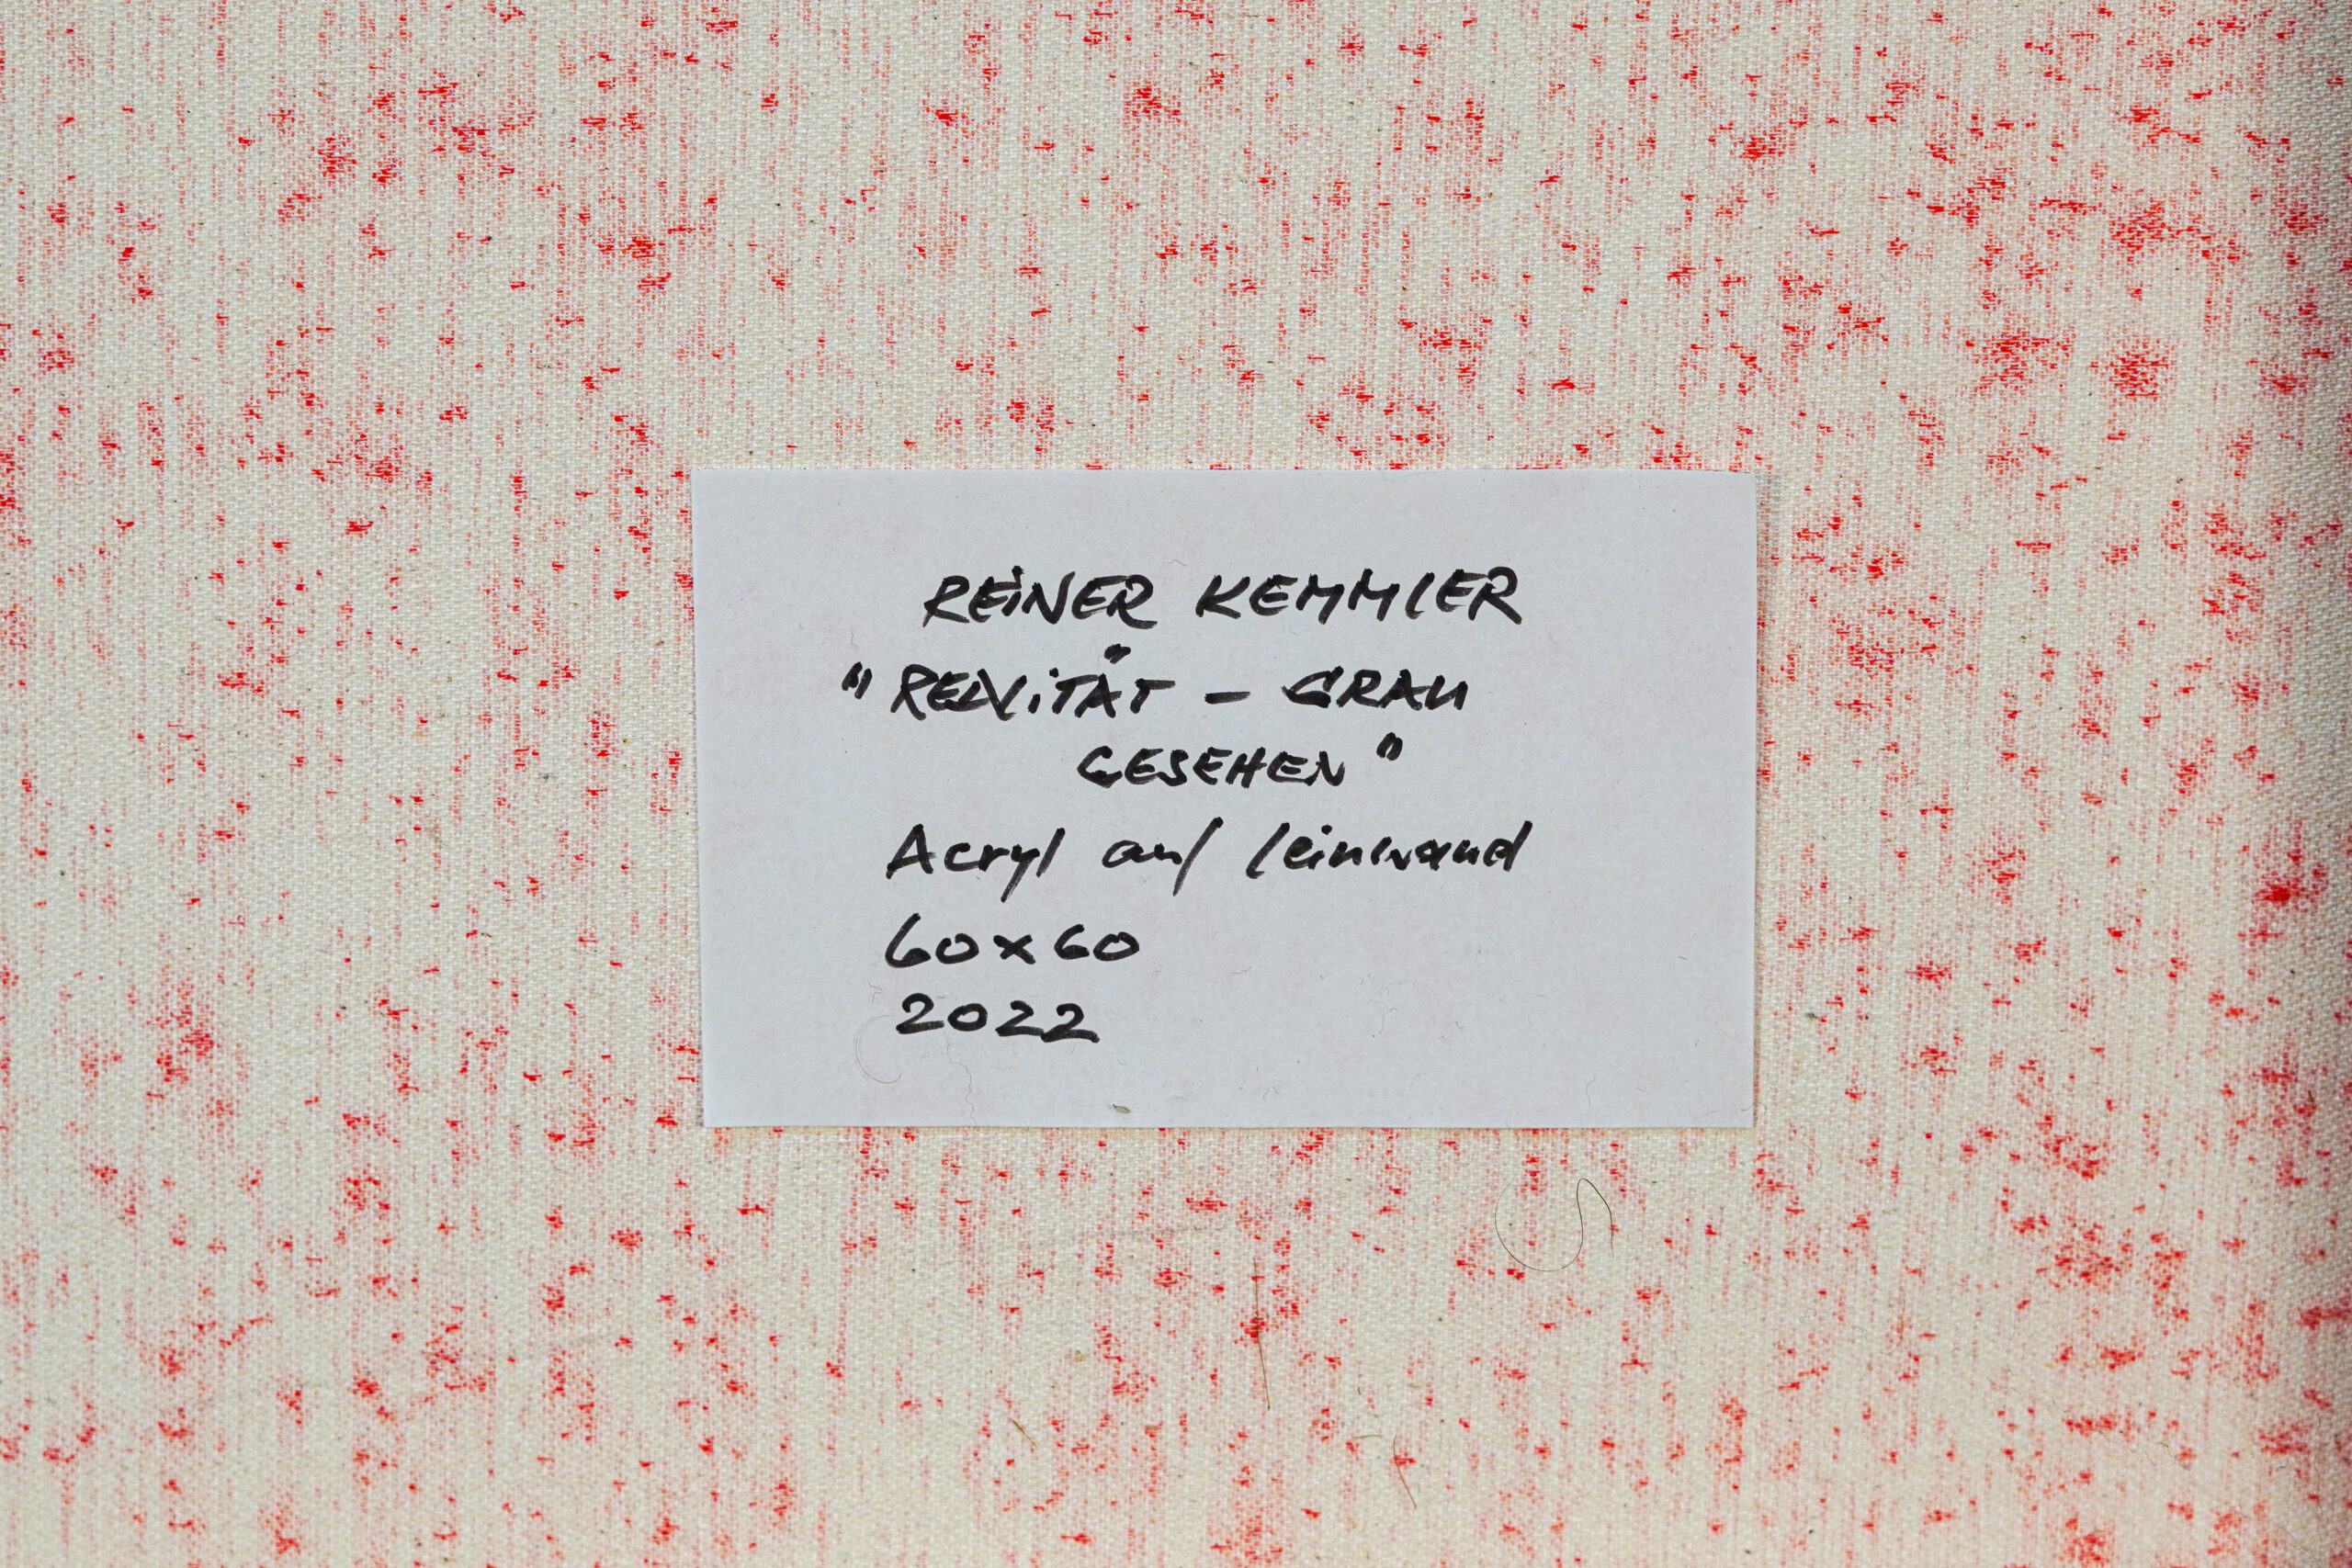 REINER KEMMLER
"REALITÄT – GRAU
GESEHEN"
Acryl auf Leinwand
60x60
2022